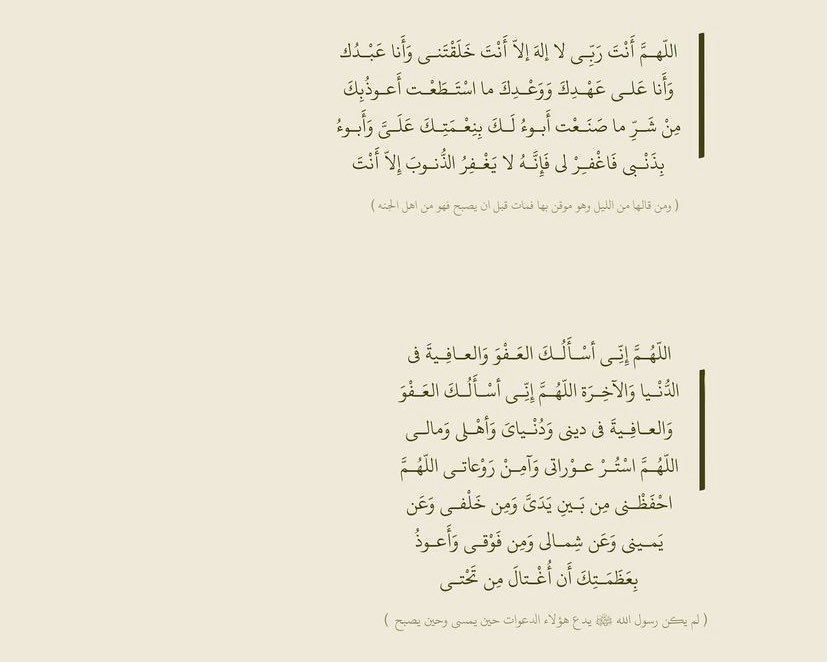 اللّهـمَّ أَنْتَ رَبِّـى لا إلهَ إلاّ أَنْتَ خَلَقْتَنـى وَأَنا عَبْـدُك
وَأَنا عَلـى عَهْـدِكَ وَوَعْـدِكَ ما اسْتَـطَعْـت أَعـوذُبِكَ
مِنْ شَـرِّ ما صَنَـعْت أَبـوءُ لَـكَ بِنِعْـمَتِـكَ عَلَـىَّ وَأَبـوءُ
بِذَنْـبى فَاغْفـِرْ لى فَإِنَّـهُ لا يَغْـفِرُ الذُّنـوبَ إِلاّ أَنْتَ
( ومن قالها من الليل وهو موقن بها فمات قبل ان يصبح فهو من اهل الجنه )
اللّهُـمَّ إِنِّـى أسْـأَلُـكَ العَـفْوَ وَالعـافِـيةَ فى
الدُّنْـيا وَالآخِـرَة اللّهُـمَّ إِنِّـى أسْـأَلُـكَ العَـفْوَ
وَالعـافِـيةَ فى دينى وَدُنْـياىَ وَأهْـلى وَمالـى
اللّهُـمَّ اسْتُـرْ عـوْراتى وَآمِـنْ رَوْعاتـى اللّهُـمَّ
احْفَظْـنى مِن بَـينِ يَدَىَّ وَمِن خَلْفـى وَعَن
يَمـينى وَعَن شِمـالى وَمِن فَوْقـى وَأَعـوذُ
بِعَظَمَـتِكَ أَن أُغْـتالَ مِن تَحْتـى
( لم يكن رسول الله ﷺ يدع هؤلاء الدعوات حين يمسى وحين يصبح )